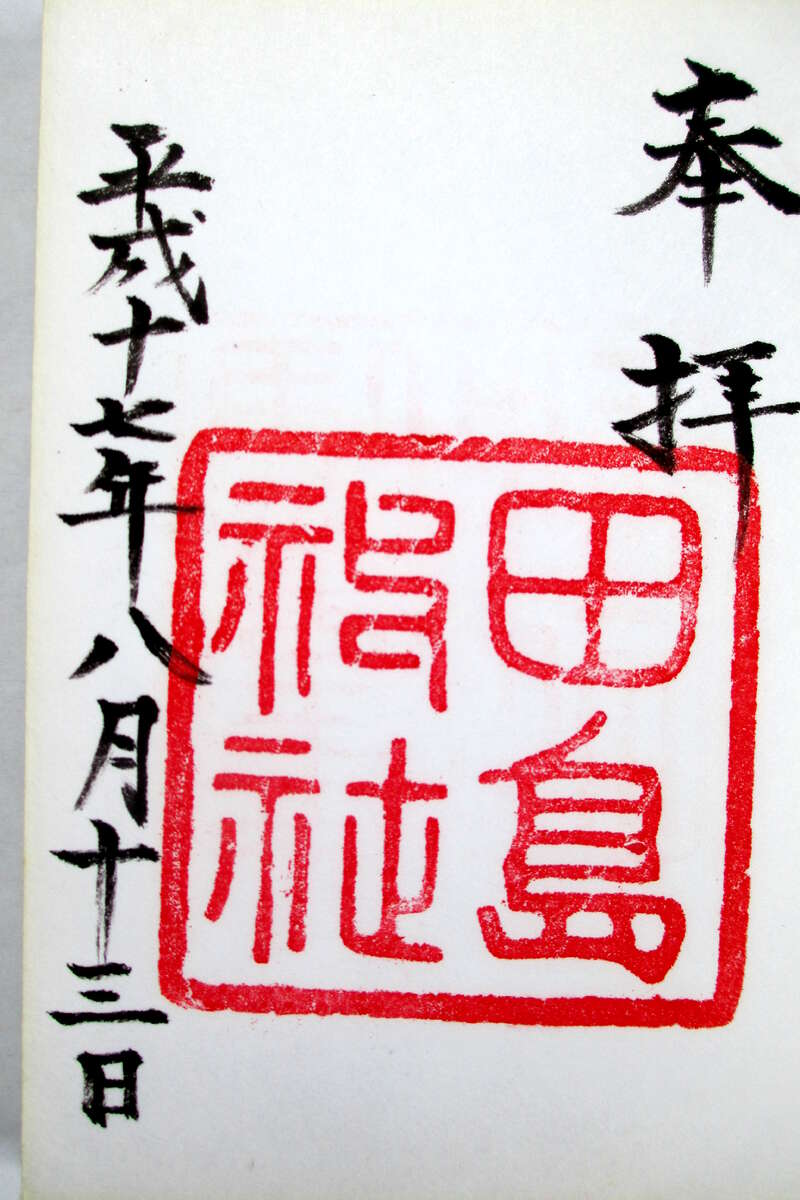 奉拝
田島
神社
平成十七年八月十三日